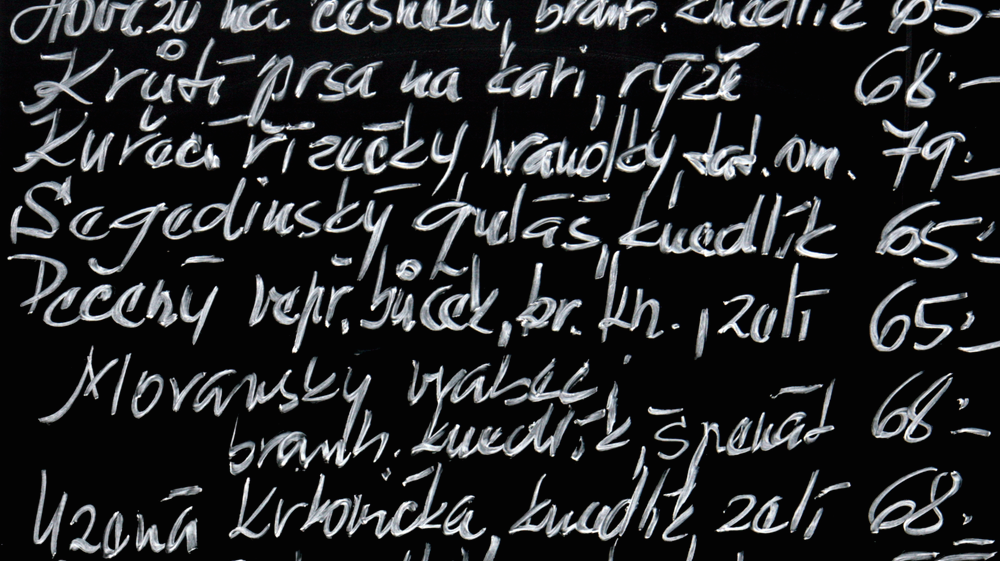 Hovězí na česneku, bramb. knedlík 65.-
Krůtí prsa na kari, rýže 68.-
Kuřecí řízečky, hranolky, tat. om. 79.-
Segedínský guláš, knedlík 65.-
Pečený vepř. bůček, br. kn., zelí 65.-
Moravský vrabec,
bramb. knedlík, špenát 68.-
Uzená krkovička, knedlík, zelí 68.-